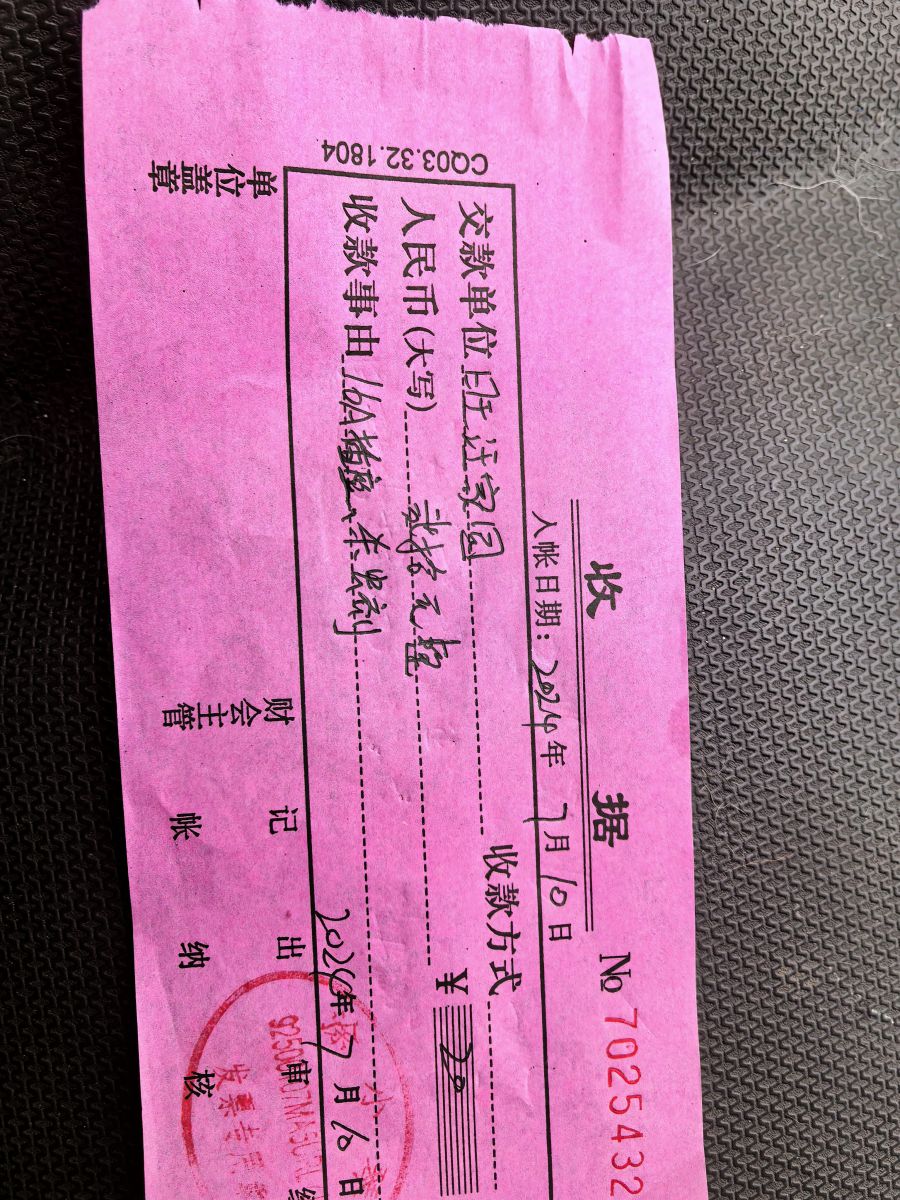 收据
No 7025432
入帐日期：2024年7月10日
CQ03.32.1804
交款单位 家园 收款方式
人民币(大写) 贰拾元整 ¥ 20
收款事由 16A插座、杀虫剂
2024年7月10日
单位盖章 财会主管 记帐 出纳 审核
发票专用